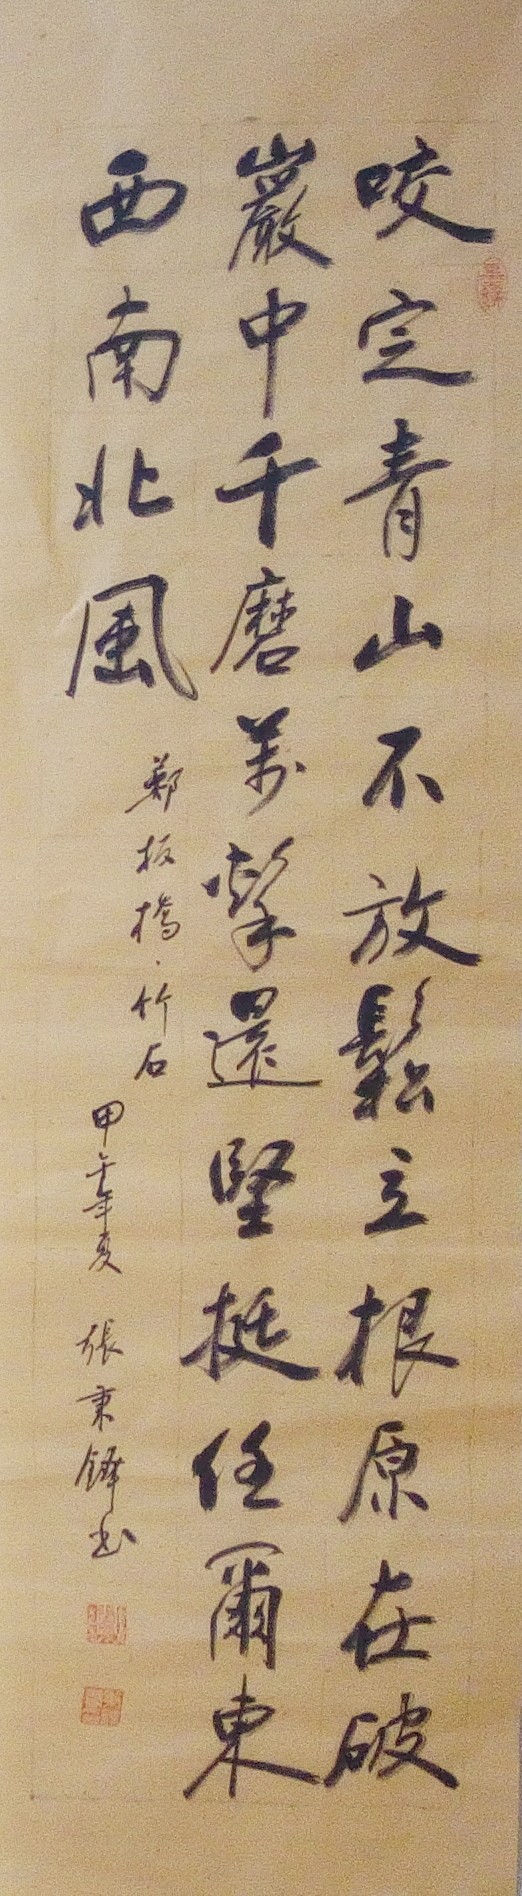 咬定青山不放鬆立根原在破
巖中千磨萬擊還堅挺任爾東
西南北風
鄭板橋、竹石
甲午年夏 張秉鐸書